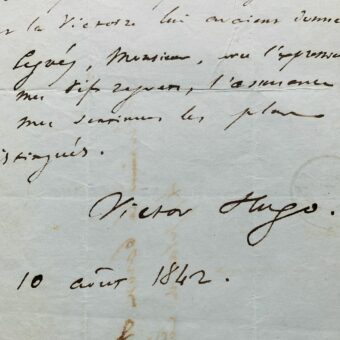 la Victoire lui avaient donné
Agréez, Monsieur, avec l'expression
mes vifs regrets, l'assurance
mes sentimens les plus
distingués.
Victor Hugo.
10 août 1842.